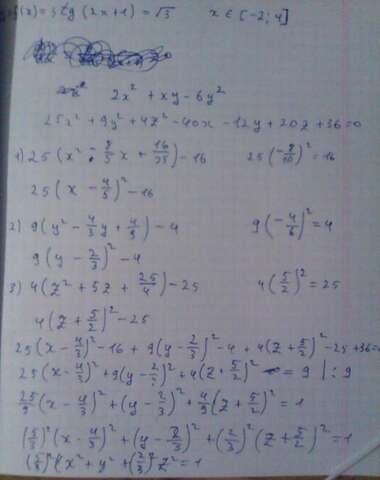 f(x) = 3tg(2x+1) = √3    x ∈ [-2; 4]
2x² + xy - 6y²
25x² + 9y² + 4z² - 40x - 12y + 20z + 36 = 0
1) 25(x² - 8/5 x + 16/25) - 16    25(-8/10)² = 16
25(x - 4/5)² - 16
2) 9(y² - 4/3 y + 4/9) - 4    9(-4/6)² = 4
9(y - 2/3)² - 4
3) 4(z² + 5z + 25/4) - 25    4(5/2)² = 25
4(z + 5/2)² - 25
25(x - 4/3)² - 16 + 9(y - 2/3)² - 4 + 4(z + 5/2)² - 25 + 36 = 0
25(x - 4/3)² + 9(y - 2/3)² + 4(z + 5/2)² = 9 | : 9
25/9 (x - 4/3)² + (y - 2/3)² + 4/9 (z + 5/2)² = 1
(5/3)² (x - 4/3)² + (y - 2/3)² + (2/3)² (z + 5/2)² = 1
(5/3)² x² + y² + (2/3)² z² = 1